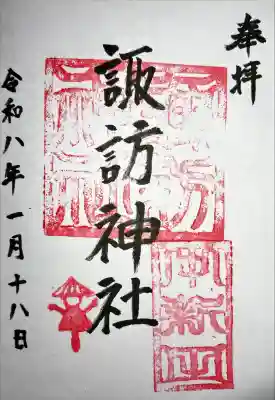 奉拝
諏訪神社
令和八年一月十八日